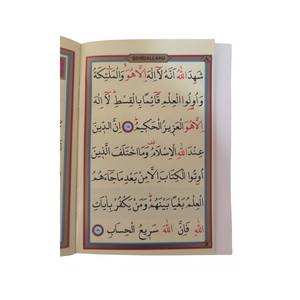 ŞEHİDALLAHU
شَهِدَ اللّٰهُ اَنَّهُ لَٓا اِلٰهَ اِلَّا هُوَۙ وَالْمَلٰٓئِكَةُ
وَاُو۬لُوا الْعِلْمِ قَٓائِمًا بِالْقِسْطِۜ لَٓا اِلٰهَ
اِلَّا هُوَ الْعَز۪يزُ الْحَك۪يمُ اِنَّ الدّ۪ينَ
عِنْدَ اللّٰهِ الْاِسْلَامُ وَمَا اخْتَلَفَ الَّذ۪ينَ
اُو۫تُوا الْكِتَابَ اِلَّا مِنْ بَعْدِ مَا جَٓاءَهُمُ
الْعِلْمُ بَغْيًا بَيْنَهُمْۜ وَمَنْ يَكْفُرْ بِاٰيَاتِ
اللّٰهِ فَاِنَّ اللّٰهَ سَر۪يعُ الْحِسَابِ